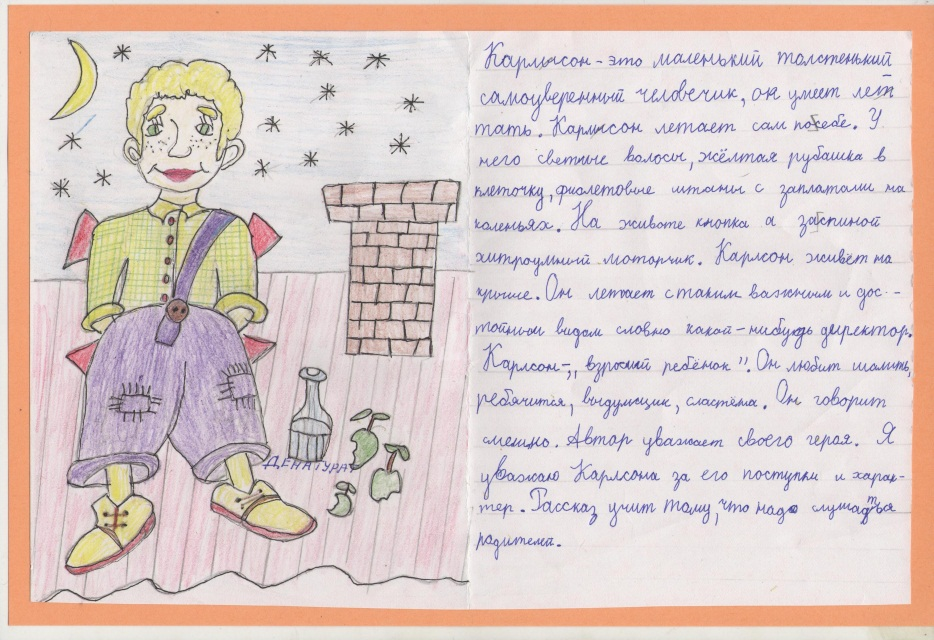 ДЕНАТУРАТ
Карлысон - это маленький толстенький
самоуверенный человечик, он умеет лет
тать. Карлысон летает сам посебе. У
него светлые волосы, жёлтая рубашка в
клеточку, фиолетовые штаны с заплатами на
коленьях. На животе кнопка а заспиной
хитроумный моторчик. Карлсон живёт на
крыше. Он летает с таким важным и дос-
тойным видом словно какой-нибудь директор.
Карлсон-„взрослый ребёнок". Он любит шалить,
ребячится, выдумщик, сластёна. Он говорит
смешно. Автор уважает своего героя. Я
уважаю Карлсона за его поступки и харак-
тер. Рассказ учит тому, что надо слушаться
родителей.